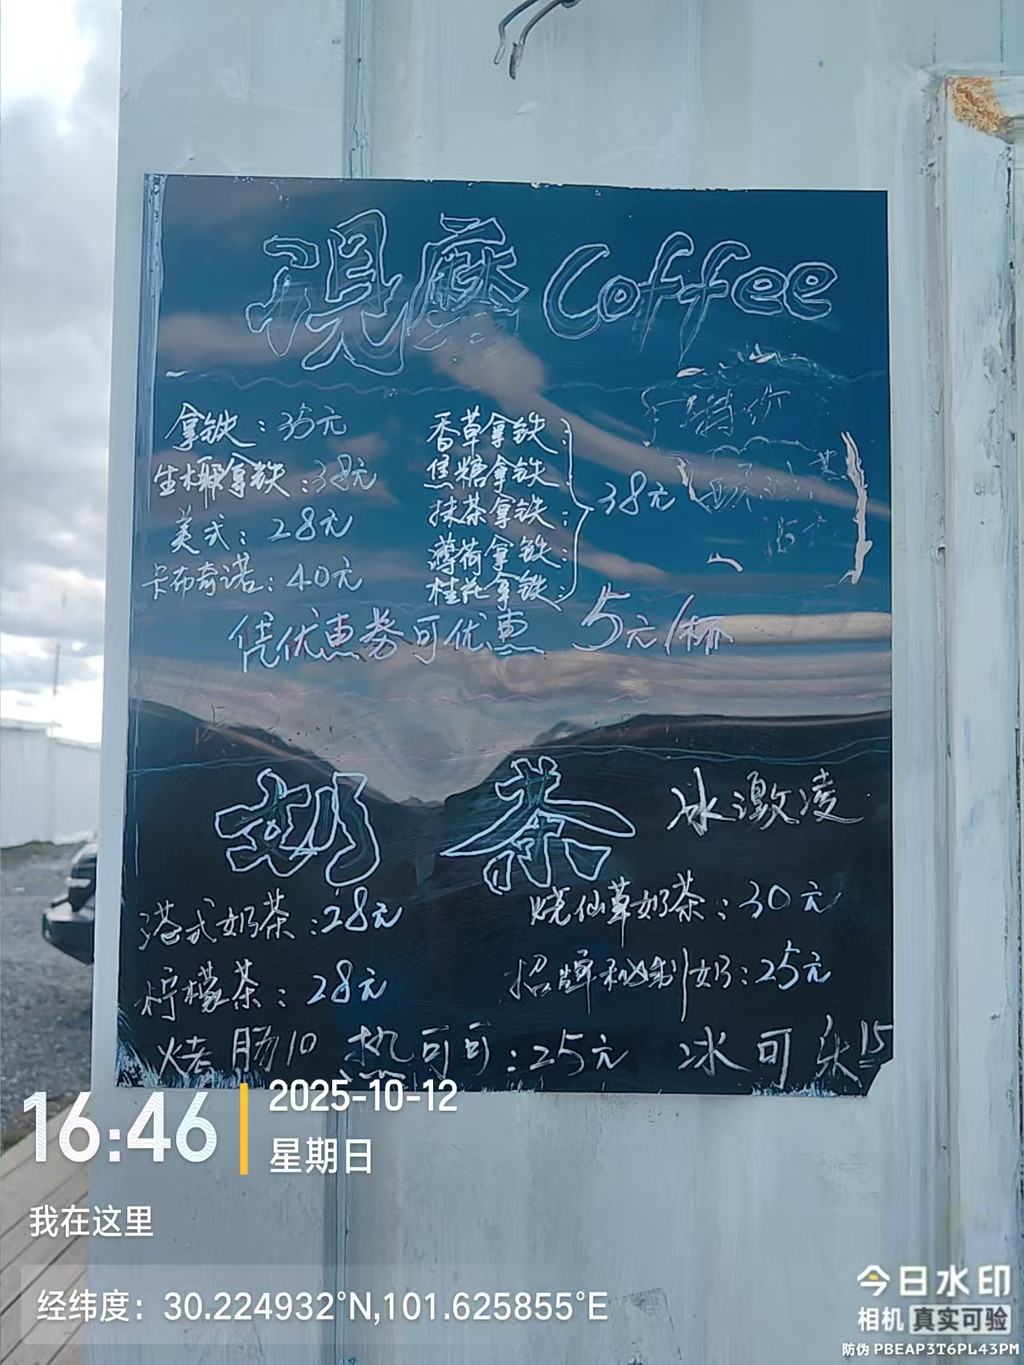 现磨 Coffee
拿铁：35元
生椰拿铁：38元
美式：28元
卡布奇诺：40元
香草拿铁：
焦糖拿铁：
抹茶拿铁：
薄荷拿铁：
桂花拿铁：
38元
特价
凭优惠券可优惠 5元/杯
奶茶
冰激凌
港式奶茶：28元
烧仙草奶茶：30元
柠檬茶：28元
招牌秘制奶：25元
烤肠10 热可可：25元 冰可乐15
16:46
2025-10-12
星期日
我在这里
经纬度：30.224932°N,101.625855°E
今日水印
相机 真实可验
防伪 PBEAP3T6PL43PM